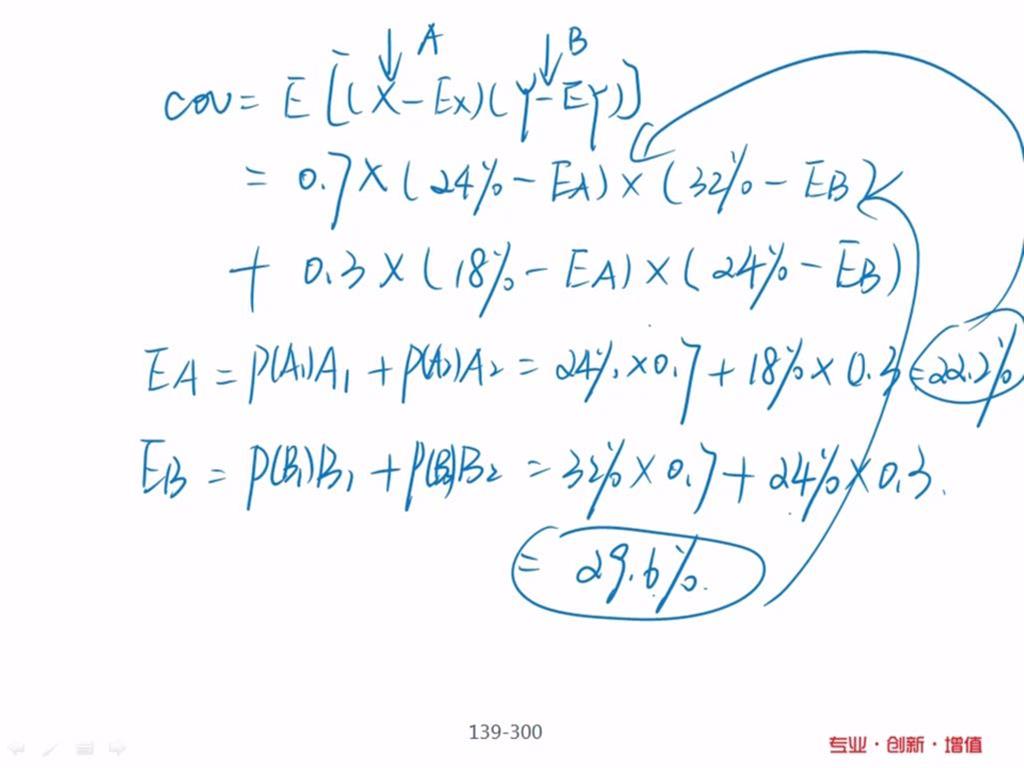 ↓A ↓B
cov = E[(X-EX)(Y-EY)]
= 0.7×(24%-EA)×(32%-EB)
+ 0.3×(18%-EA)×(24%-EB)
EA = P(A1)A1 + P(A2)A2 = 24%×0.7+18%×0.3 =22.2%
EB = P(B1)B1 + P(B2)B2 = 32%×0.7+24%×0.3.
= 29.6%.
139-300
专业·创新·增值